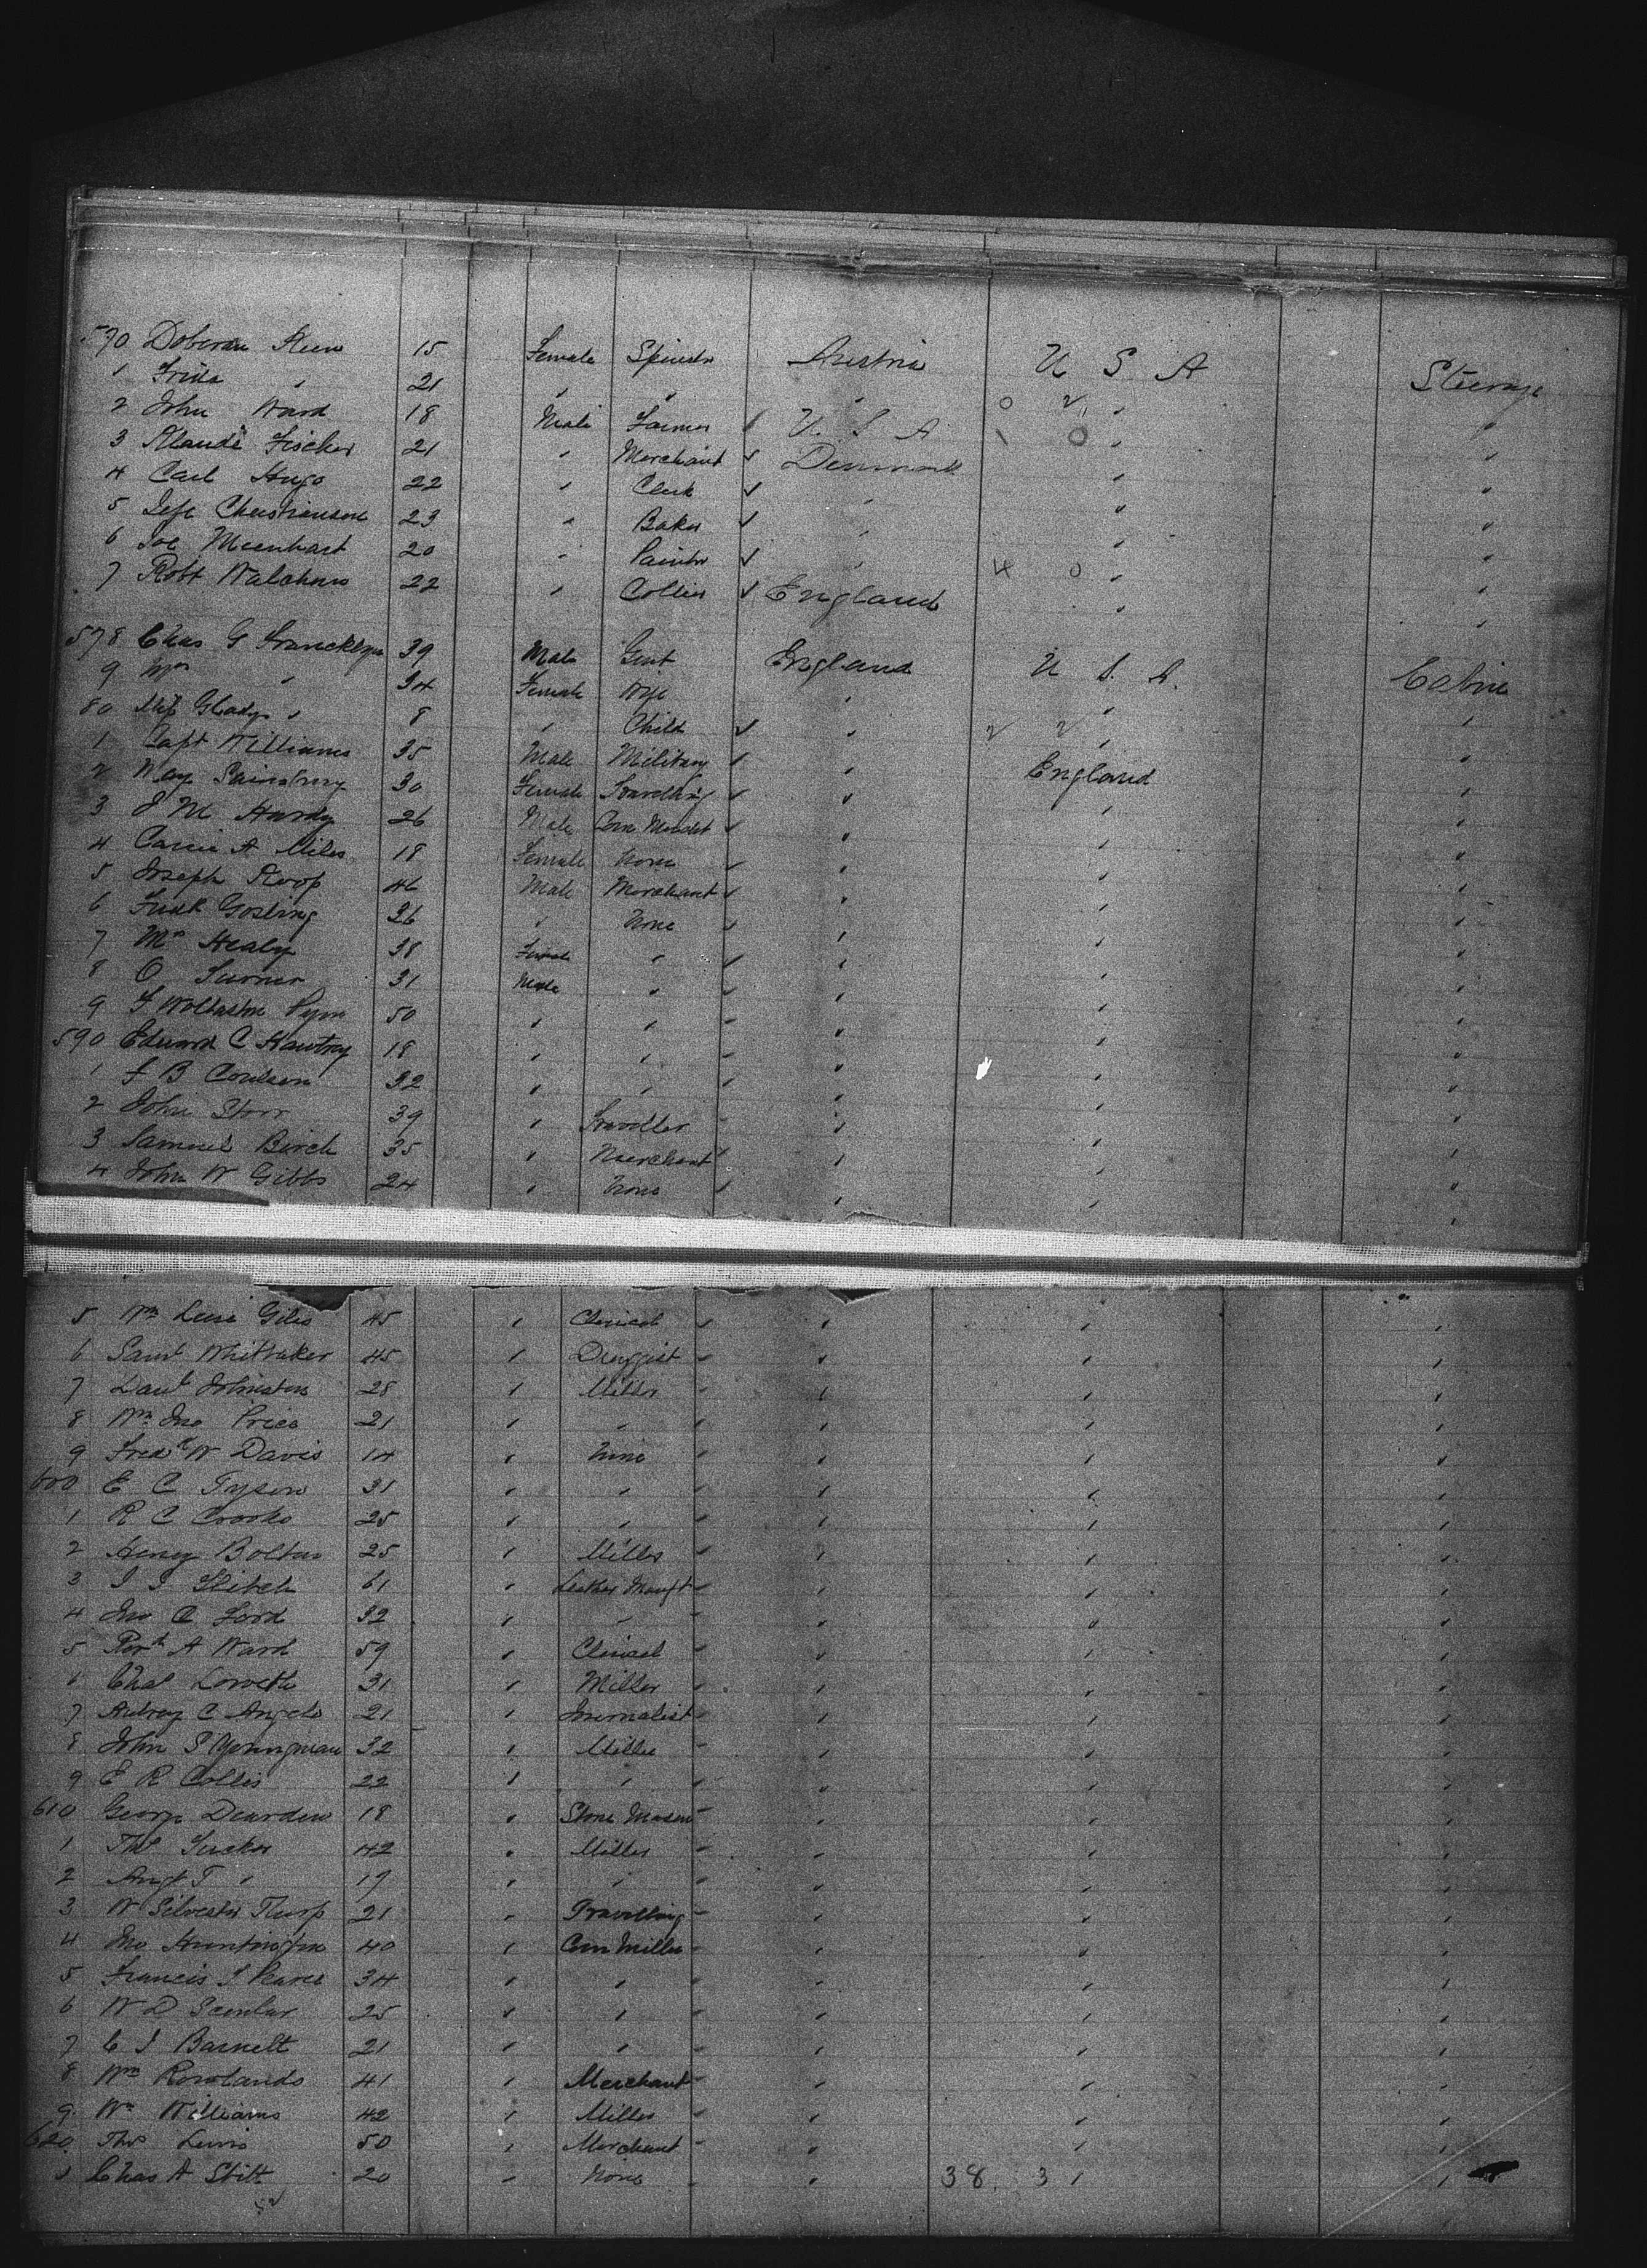 570 15 Female Austria U S A Steerage
1 " 21 " " " "
2 John Ward 18 Male Farmer U S A " "
3 Fischer 21 " Merchant Denmark " "
4 Carl Hugo 22 " Clerk " " "
5 23 " Baker " " "
6 20 " Painter " " "
7 Robt 22 " Collier England " "
578 Chas G Francklyn 39 Male Gent England U S A. Cabin
9 Mrs " 34 Female Wife " " "
80 Miss Gladys " 8 " Child " " "
1 Capt Williams 35 Male Military " England "
2 30 Female Travelling " " "
3 J M Hardy 26 Male " " "
4 Carrie A Miles 18 Female None " " "
5 Joseph Roop 46 Male Merchant " " "
6 Gosling 26 " None " " "
7 Mrs Healy 38 Female " " " "
8 O Turner 31 Male " " " "
9 F Wollaston Pym 50 " " " " "
590 Edward C Hawtrey 18 " " " " "
1 J B Coulson 32 " " " " "
2 John Storr 39 " Traveller " " "
3 Samuel Birch 35 " Merchant " " "
4 John W Gibbs 24 " None " " "
5 Wm Giles 45 " Clerical " " "
6 Saml Whittaker 45 " Druggist " " "
7 Johnston 28 " Miller " " "
8 Wm Jno Price 21 " " " " "
9 Fredk W Davis 14 " None " " "
600 E C Tyson 31 " " " " "
1 R C Crooks 25 " " " " "
2 Henry Bolton 25 " Miller " " "
3 61 " Leather Manuft " " "
4 Jno C Ford 32 " " " " "
5 A Ward 59 " Clerical " " "
6 Chas 31 " Miller " " "
7 Aubrey C Angelo 21 " Journalist " " "
8 John S Youngman 32 " Miller " " "
9 E R Collis 22 " " " " "
610 George Dearden 18 " Stone Mason " " "
1 Thos Tucker 42 " Miller " " "
2 T " 19 " " " " "
3 W Silvester Thorp 21 " Travelling " " "
4 Jno Huntington 40 " Corn Miller " " "
5 Francis J Pearce 34 " " " " "
6 W D 25 " " " " "
7 C J Barnett 21 " " " " "
8 Wm Rowlands 41 " Merchant " " "
9 Wm Williams 42 " Miller " " "
620 Thos Lewis 50 " Merchant " " "
1 Chas A Stitt 20 " None " 38 3 " "